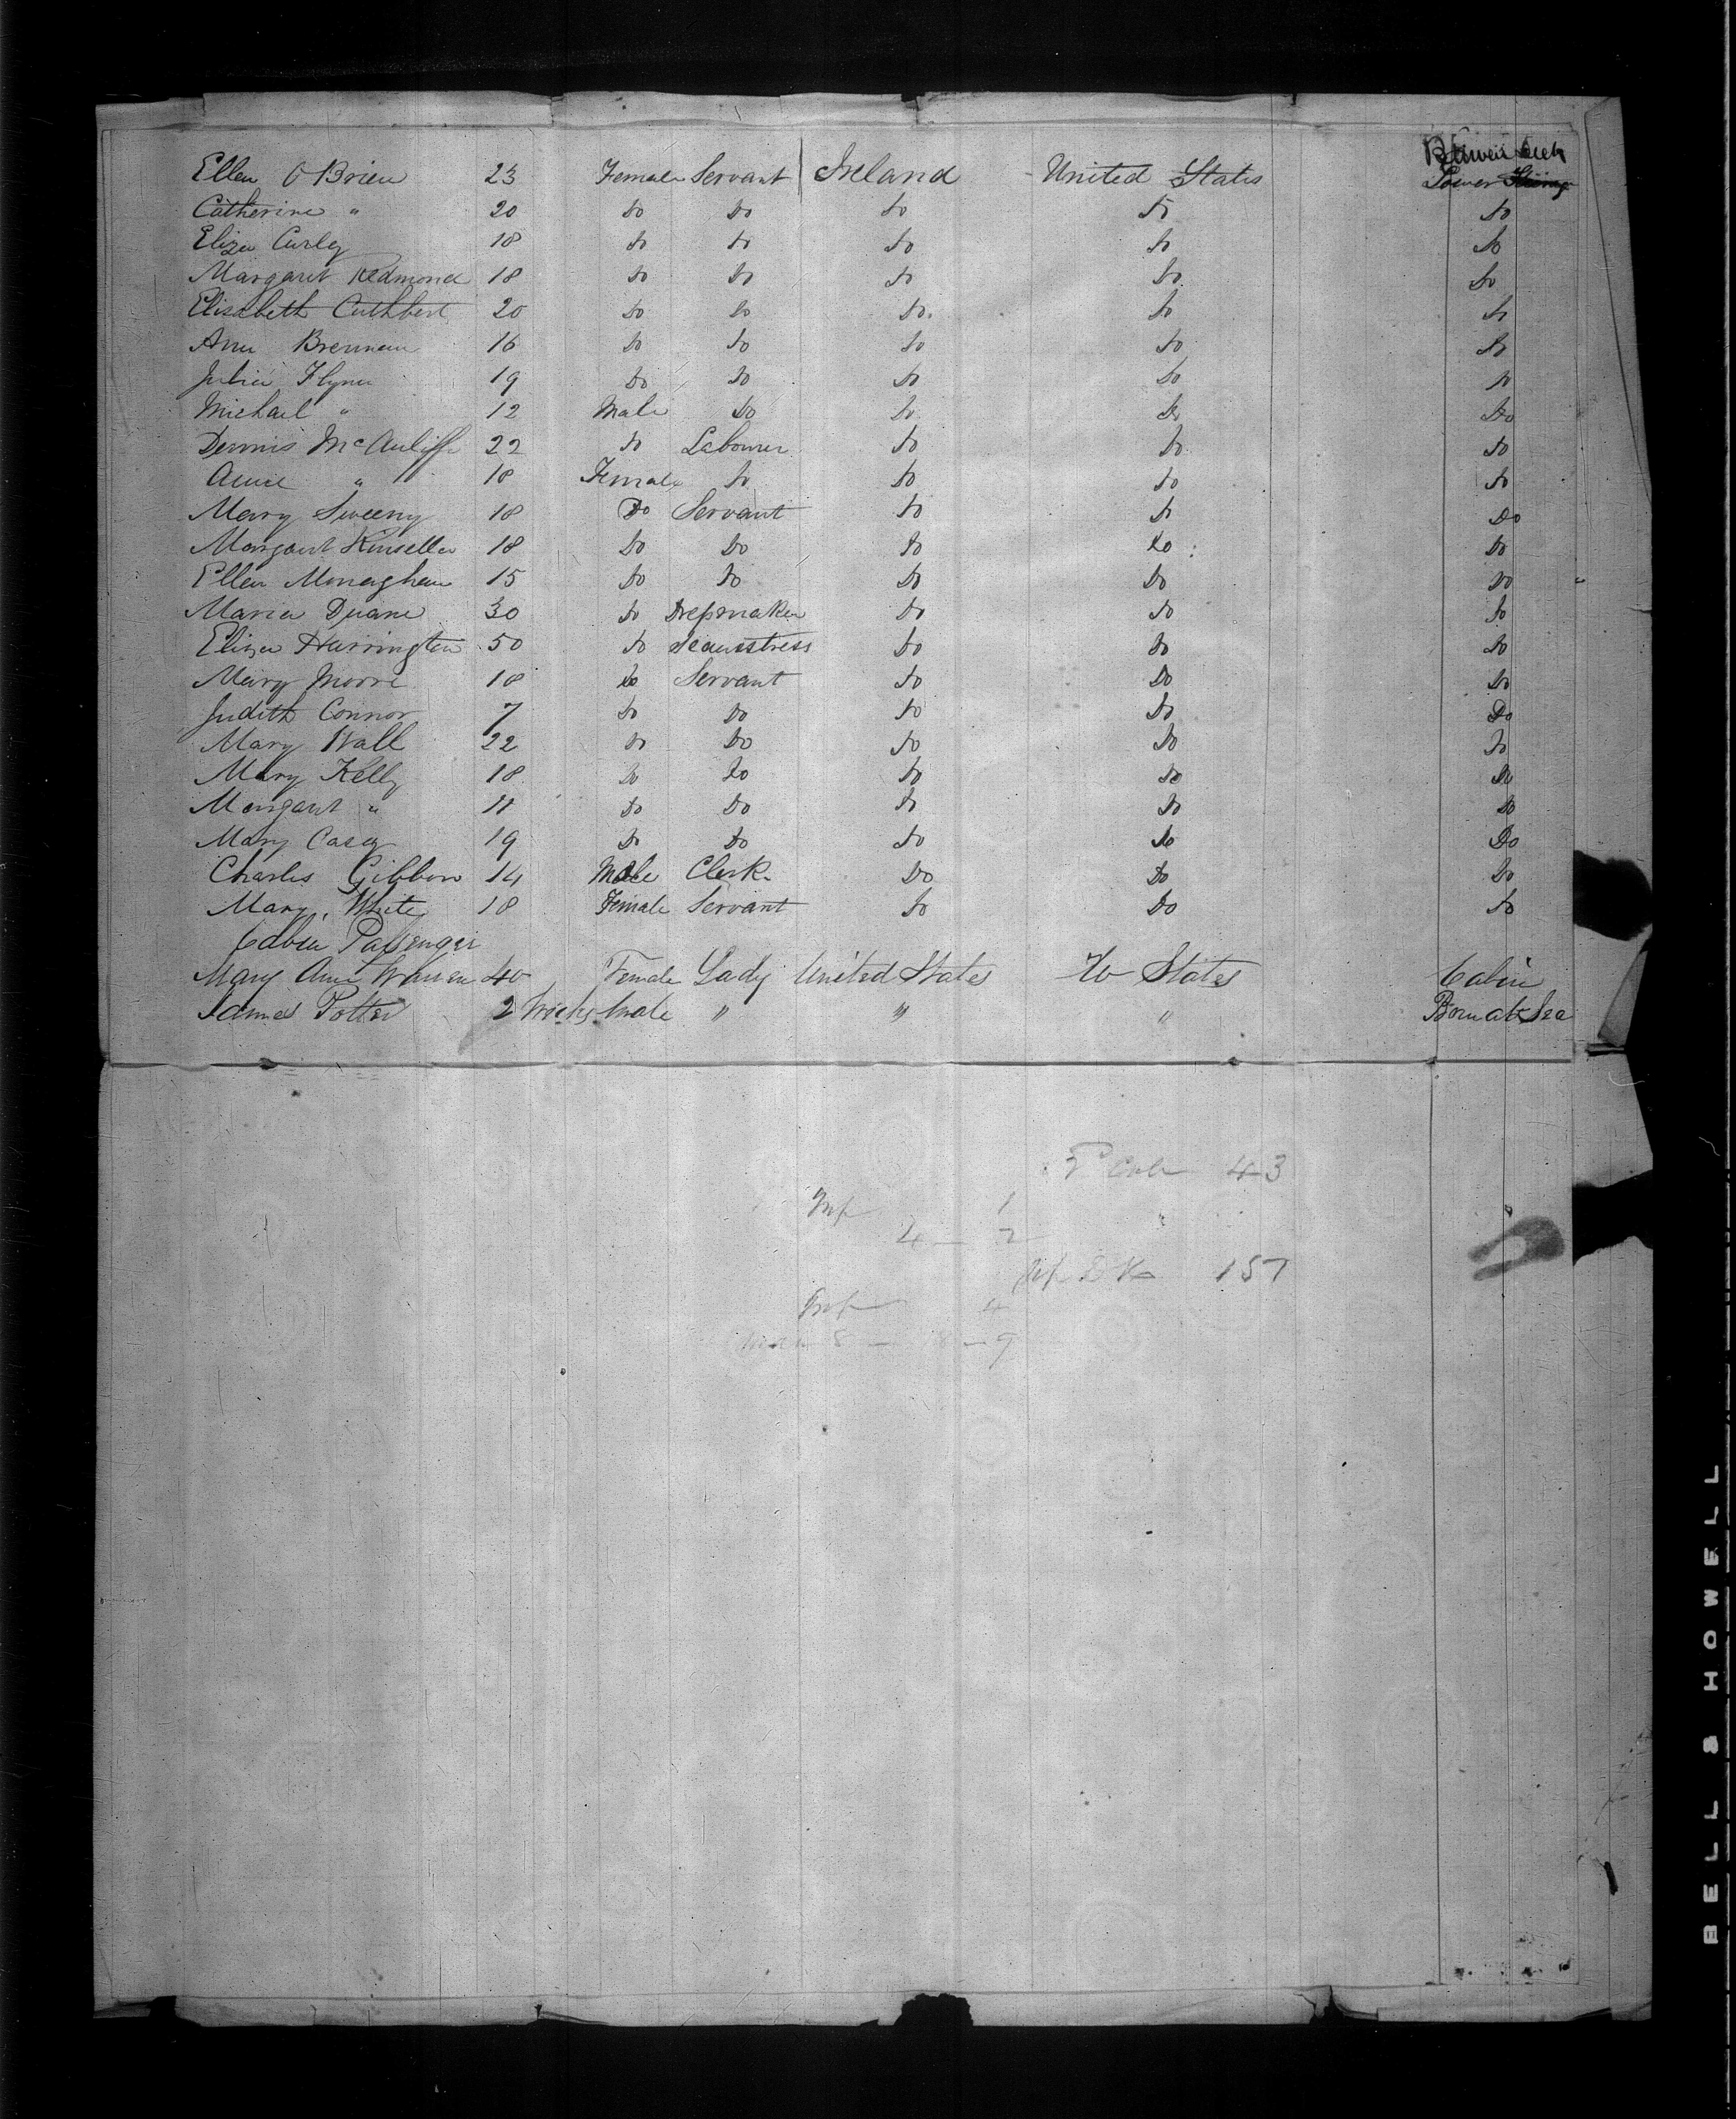 Between Deck
Ellen O Brien 23 Female Servant Ireland United States Lower
Catherine " 20 Do Do Do Do Do
Eliza Curley 18 Do Do Do Do Do
Margaret Redmond 18 Do Do Do Do Do
Elisabeth Cuthbert 20 Do Do Do. Do Do
Ann Brennan 16 Do Do Do Do Do
Julia Flynn 19 Do Do Do Do Do
Michael " 12 Male Do Do Do Do
Dennis McAuliffe 22 Do Labourer Do Do Do
" 18 Female Do Do Do Do
Mary Sweeny 18 Do Servant Do Do Do
Margaret Kinsella 18 Do Do Do Do Do
Ellen Monaghan 15 Do Do Do Do Do
Maria Duane 30 Do Dressmaker Do Do Do
Eliza Harrington 50 Do Seamstress Do Do Do
Mary Moore 18 Do Servant Do Do Do
Judith Connor 7 Do Do Do Do Do
Mary Wall 22 Do Do Do Do Do
Mary Kelly 18 Do Do Do Do Do
Margaret " 11 Do Do Do Do Do
Mary Casey 19 Do Do Do Do Do
Charles Gibbon 14 Male Clerk Do Do Do
Mary White 18 Female Servant Do Do Do
Cabin Passenger
Mary Ann Warren 40 Female Lady United States States Cabin
James Potter 2 Weeks Male " " " Born at Sea
43
Inf 1
157
Inf 4
BELL & HOWELL